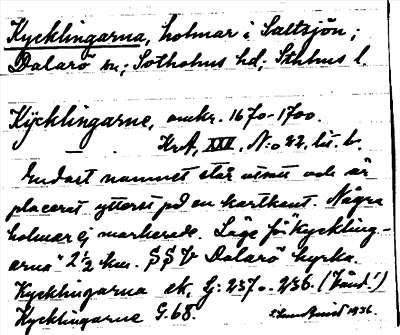 Kycklingarna, holmar i Saltsjön;
Dalarö sn; Sotholms hd; Sthlms l.
Kycklingarne, omkr. 1670-1700.
KrA, XXI, N:o 22, lit. b.
Endast namnet står utsatt och är
placerat ytterst på en kartkant. Några
holmar ej markerade. Läge för "Kyckling-
arna" 2 1/2 km. SSV Dalarö kyrka.
Kycklingarna ek,
Kycklingarne G. 68.
1936.